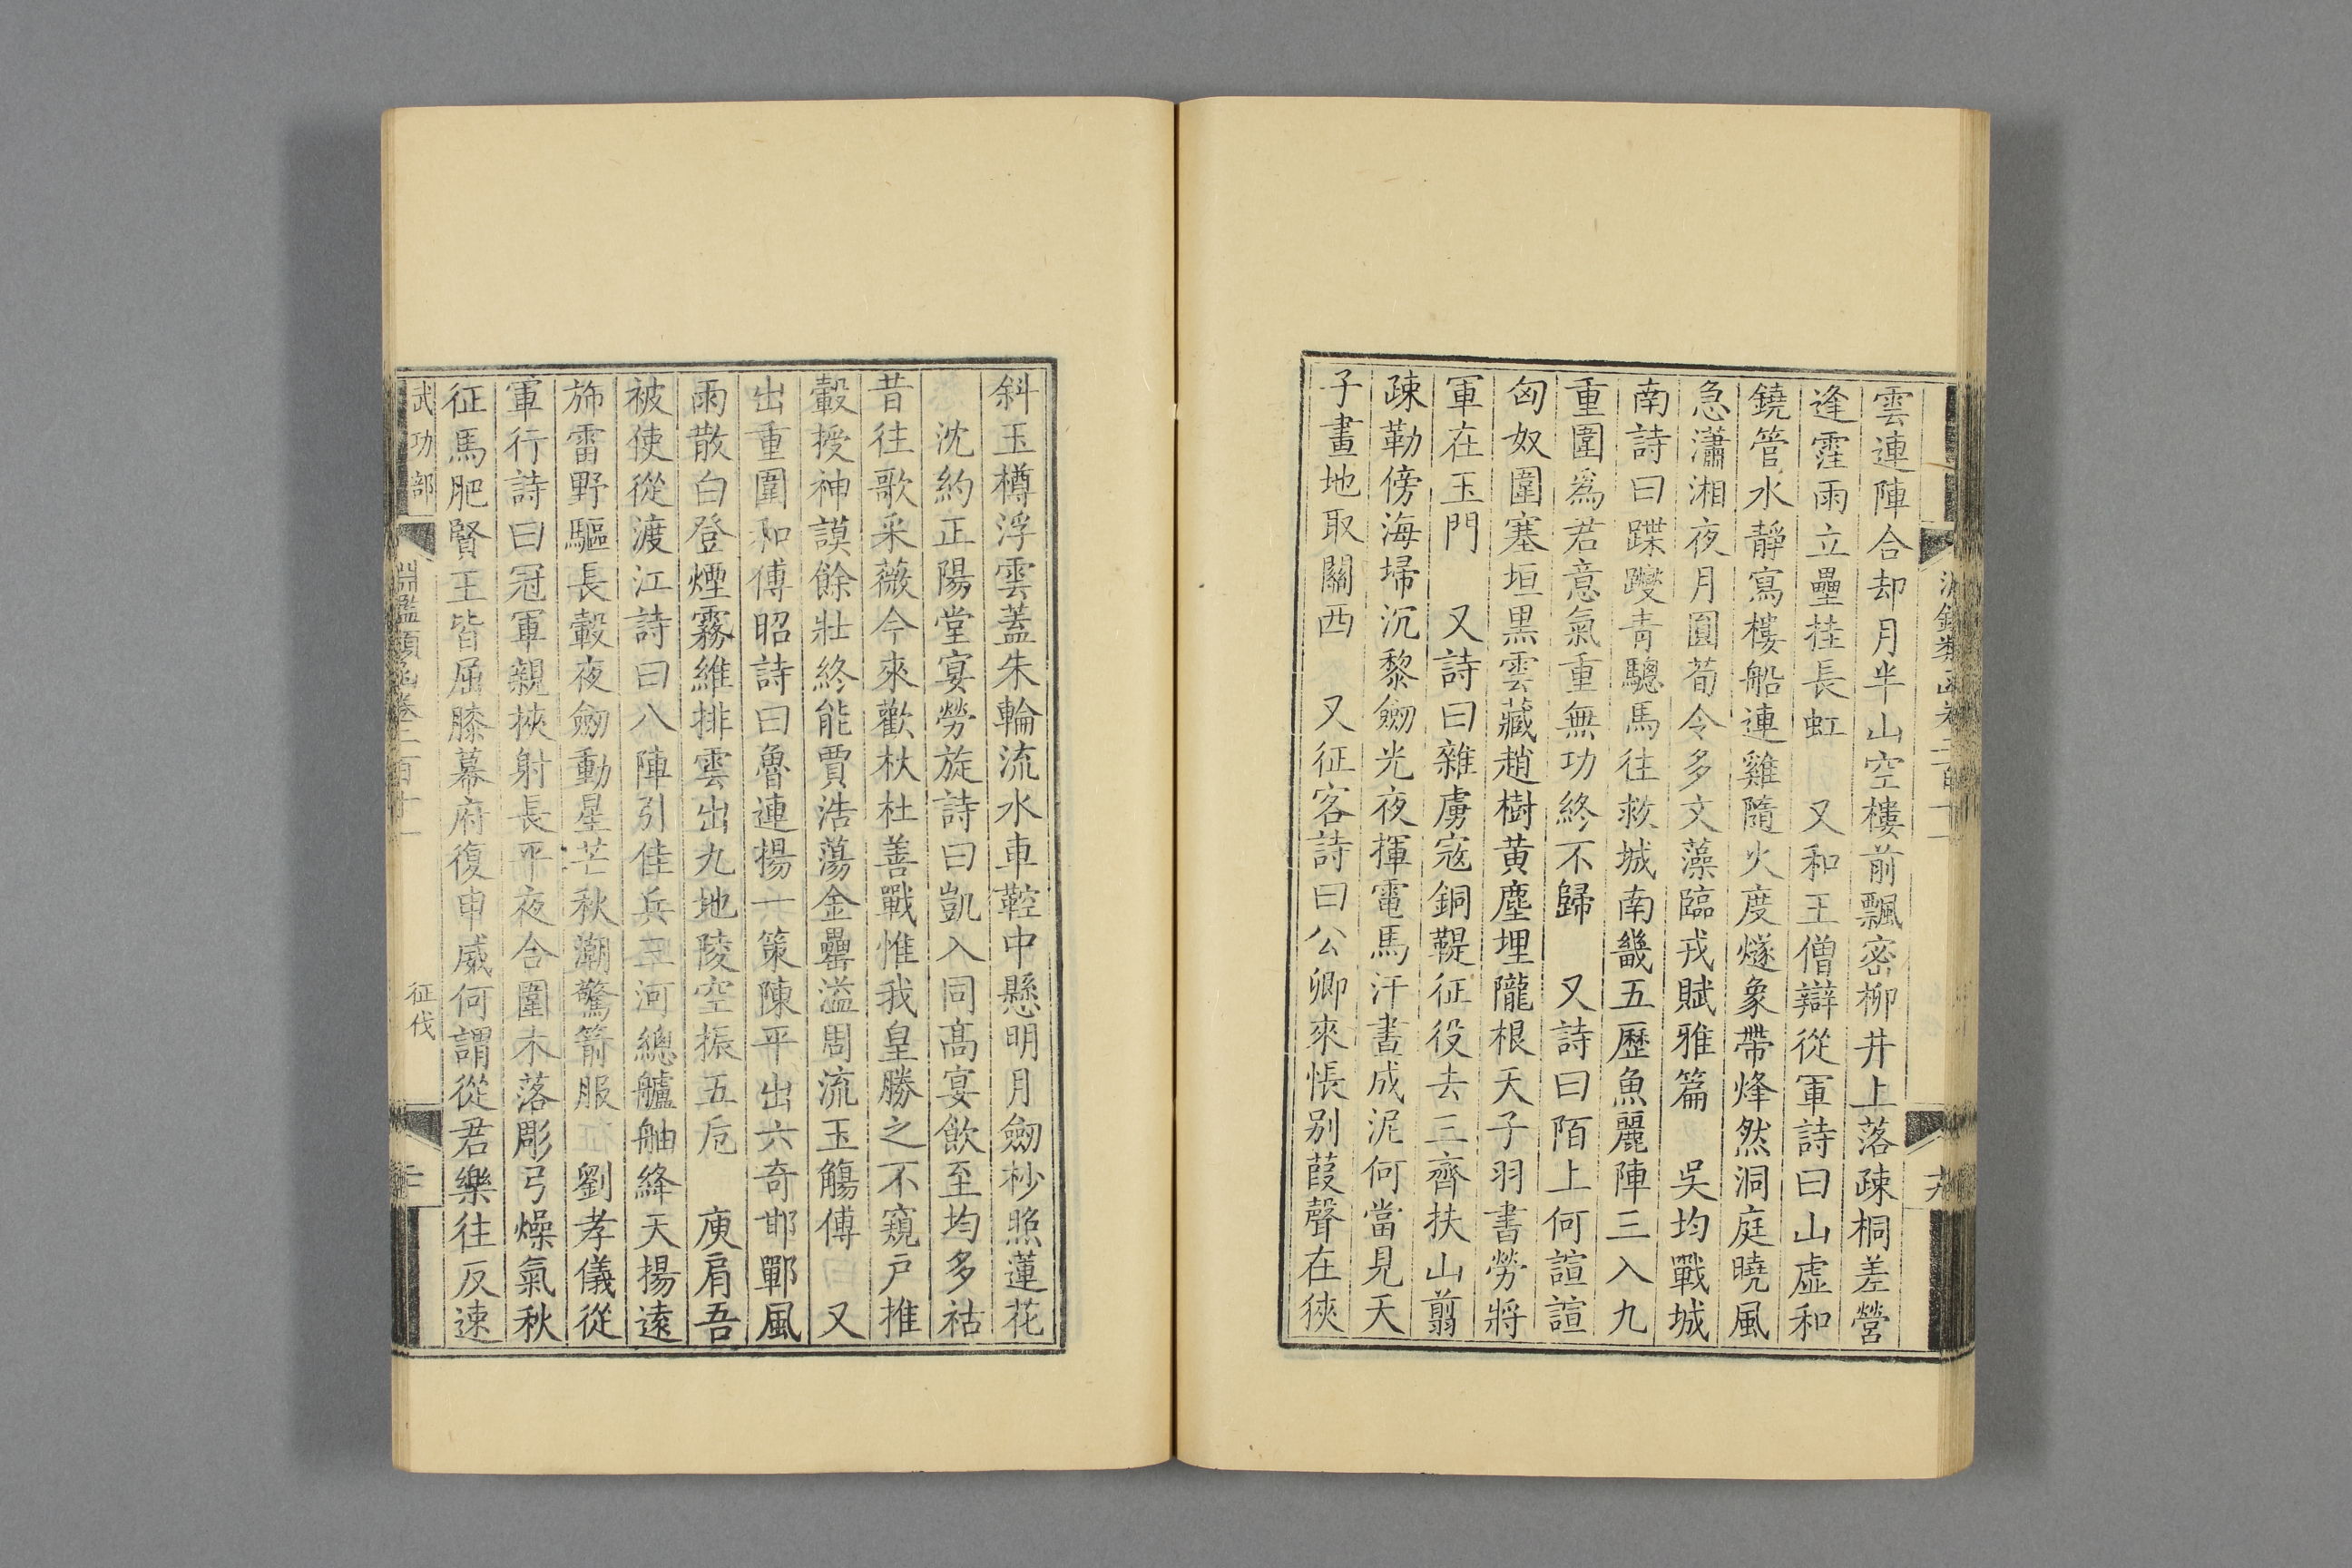 雲連陣合却月半山空樓前飄密柳井上落疎桐差營
逢霪雨立壘挂長虹　又和王僧辯從軍詩曰山虛和
鐃管水靜寫樓船連雞隨火度燧象帶烽然洞庭曉風
急瀟湘夜月圓荀令多文藻臨戎賦雅篇　吳均戰城
南詩曰蹀躞青驄馬往救城南畿五歷魚麗陣三入九
重圍爲君意氣重無功終不歸　又詩曰陌上何諠諠
匈奴圍塞垣黑雲藏趙樹黃塵埋隴根天子羽書勞將
軍在玉門　又詩曰雜虜寇銅鞮征役去三齊扶山翦
疎勒傍海埽沉黎劒光夜揮電馬汗晝成泥何當見天
子畫地取關西　又征客詩曰公卿來悵別葭聲在狹
斜玉樽浮雲蓋朱輪流水車鞚中懸明月劒杪照蓮花
沈約正陽堂宴勞旋詩曰凱入同高宴飲至均多祜
昔往歌采薇今來歡杕杜善戰惟我皇勝之不窺戶推
轂授神謨餘壯終能賈浩蕩金罍溢周流玉觴傅　又
出重圍和傅昭詩曰魯連揚一策陳平出六奇邯鄲風
雨散白登煙霧維排雲出九地陵空振五卮　庾肩吾
被使從渡江詩曰八陣引佳兵三河總艫舳絳天揚遠
斾雷野驅長轂夜劒動星芒秋潮驚箭服　劉孝儀從
軍行詩曰冠軍親挾射長平夜合圍木落彫弓燥氣秋
征馬肥賢王皆屈膝幕府復申威何謂從君樂往反速
武功部
淵鑑類函卷二百十一
征伐